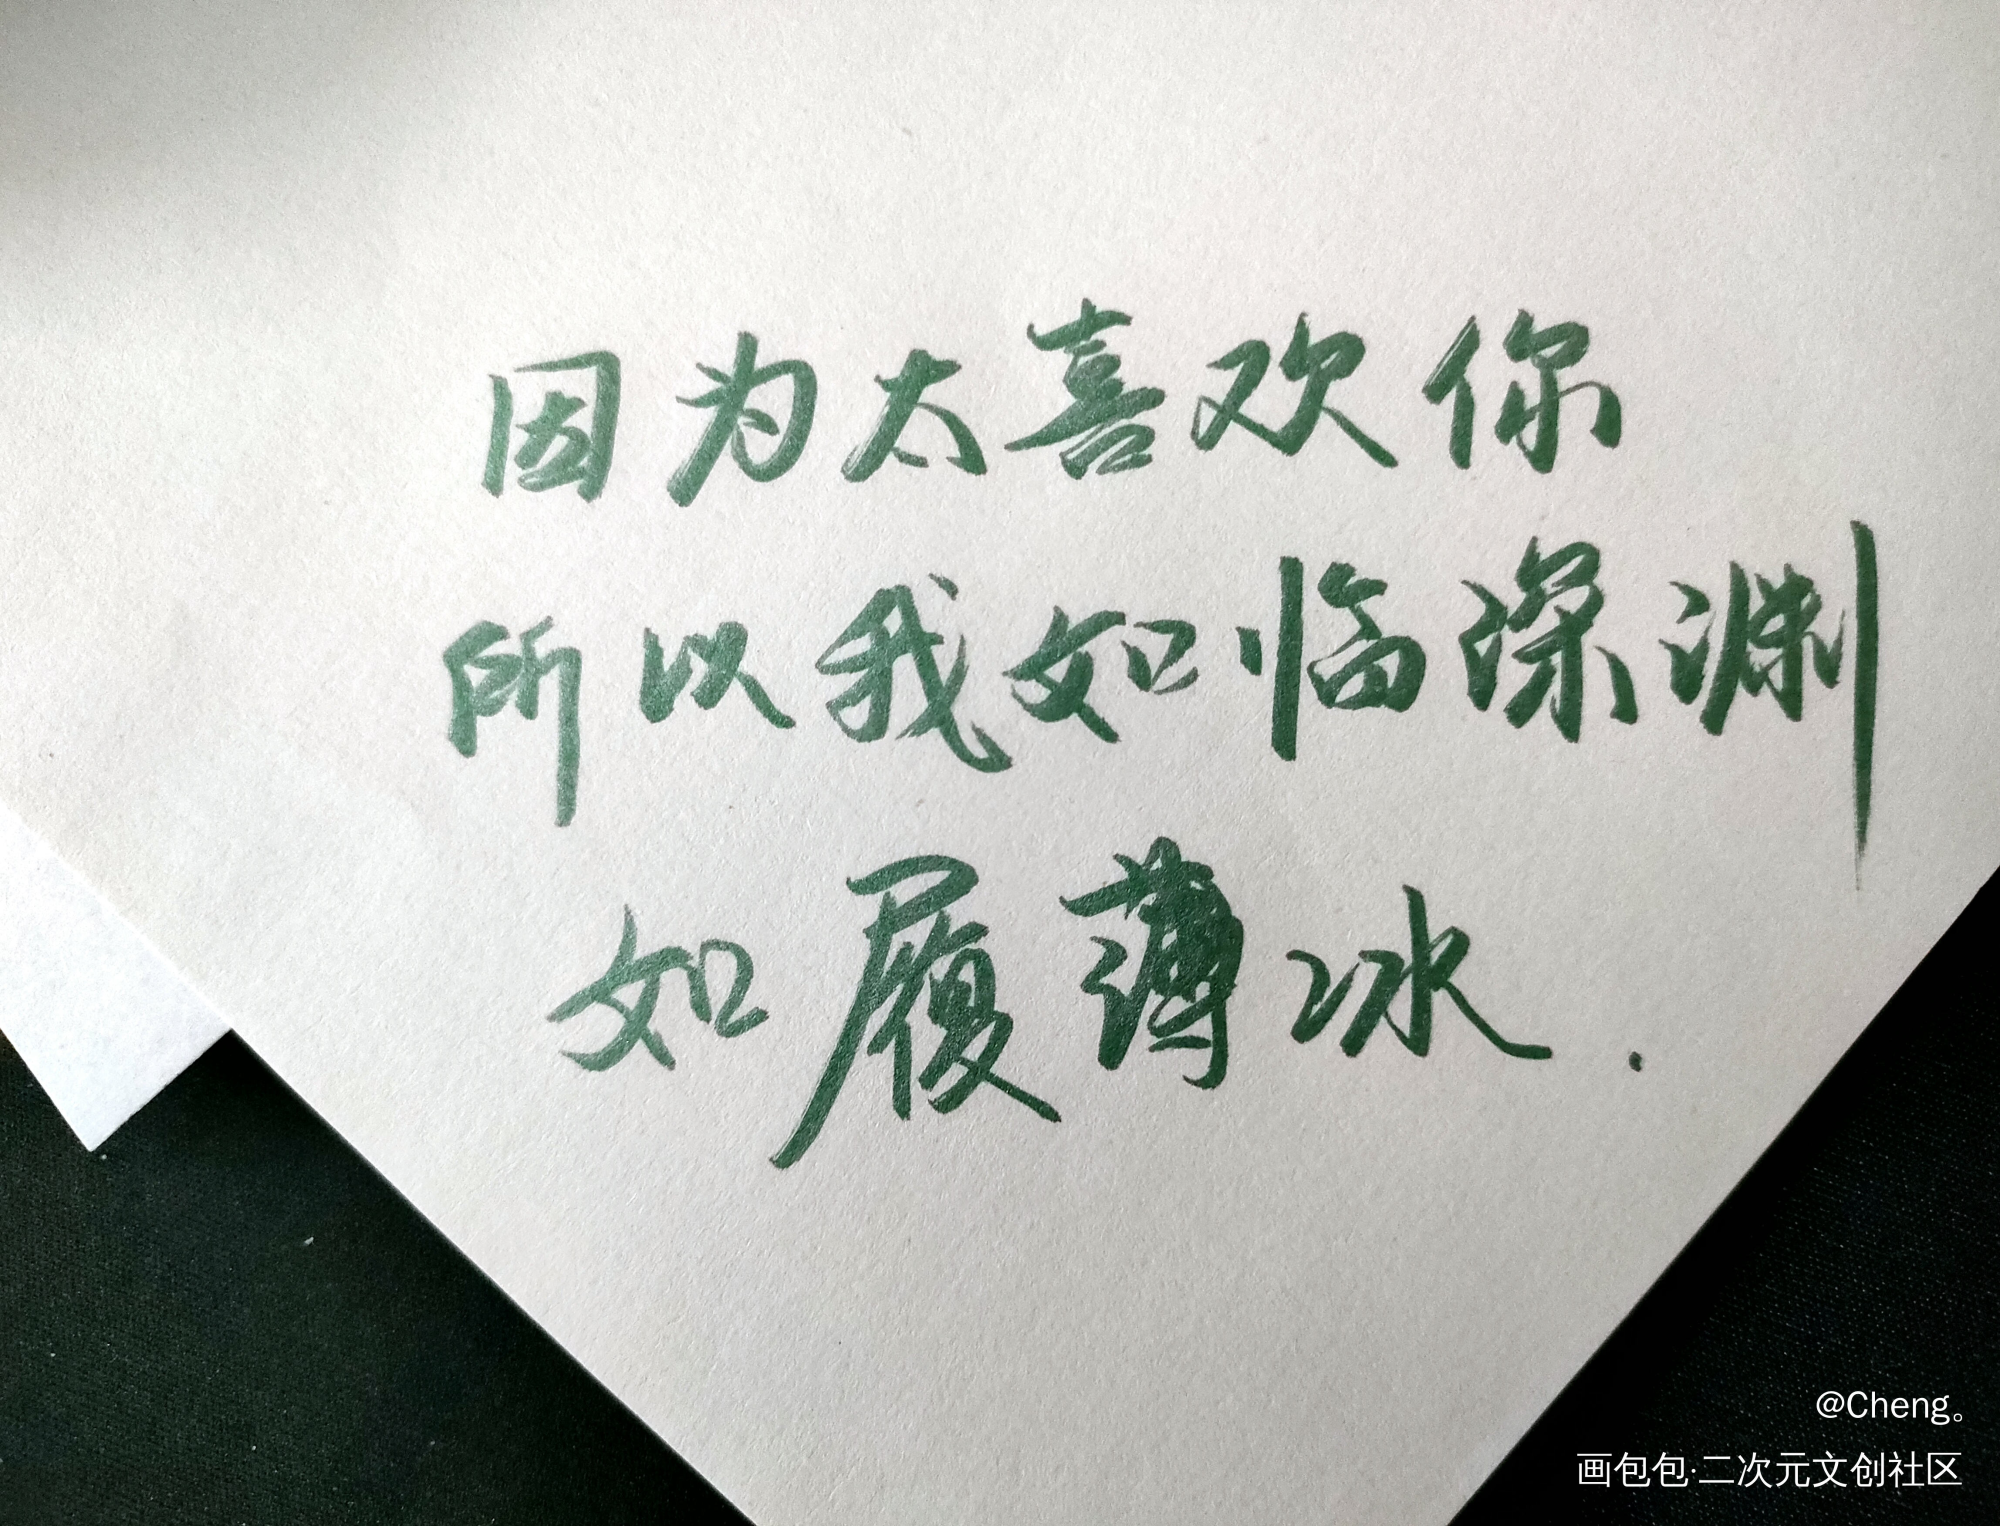 因为太喜欢你
所以我如临深渊
如履薄冰.
@Cheng。
画包包·二次元文创社区